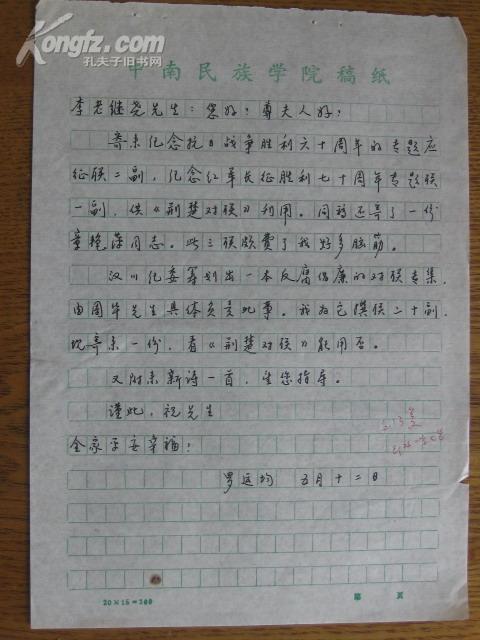 Kongfz.com
孔夫子旧书网
中南民族学院稿纸
李老继尧先生：您好！尊夫人好！
寄来纪念抗日战争胜利六十周年的专题应
征联二副，纪念红军长征胜利七十周年专题联
一副，供《荆楚对联》利用。同时还寄了一份
章艳萍同志。此三联颇费了我好多脑筋。
汉川纪委筹划出一本反腐倡廉的对联专集，
由周华先生具体负责此事。我为它撰联二十副，
现寄来一份，看《荆楚对联》能用否。
又附来新诗一首，望您指导。
谨此，祝先生
全家平安幸福！
罗运均 五月十二日
20×15=300
第 页